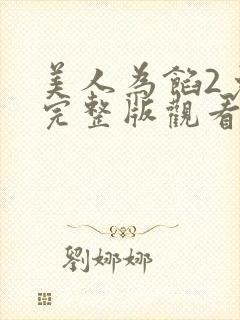 美人為餡2
完整版觀看
劉娜娜